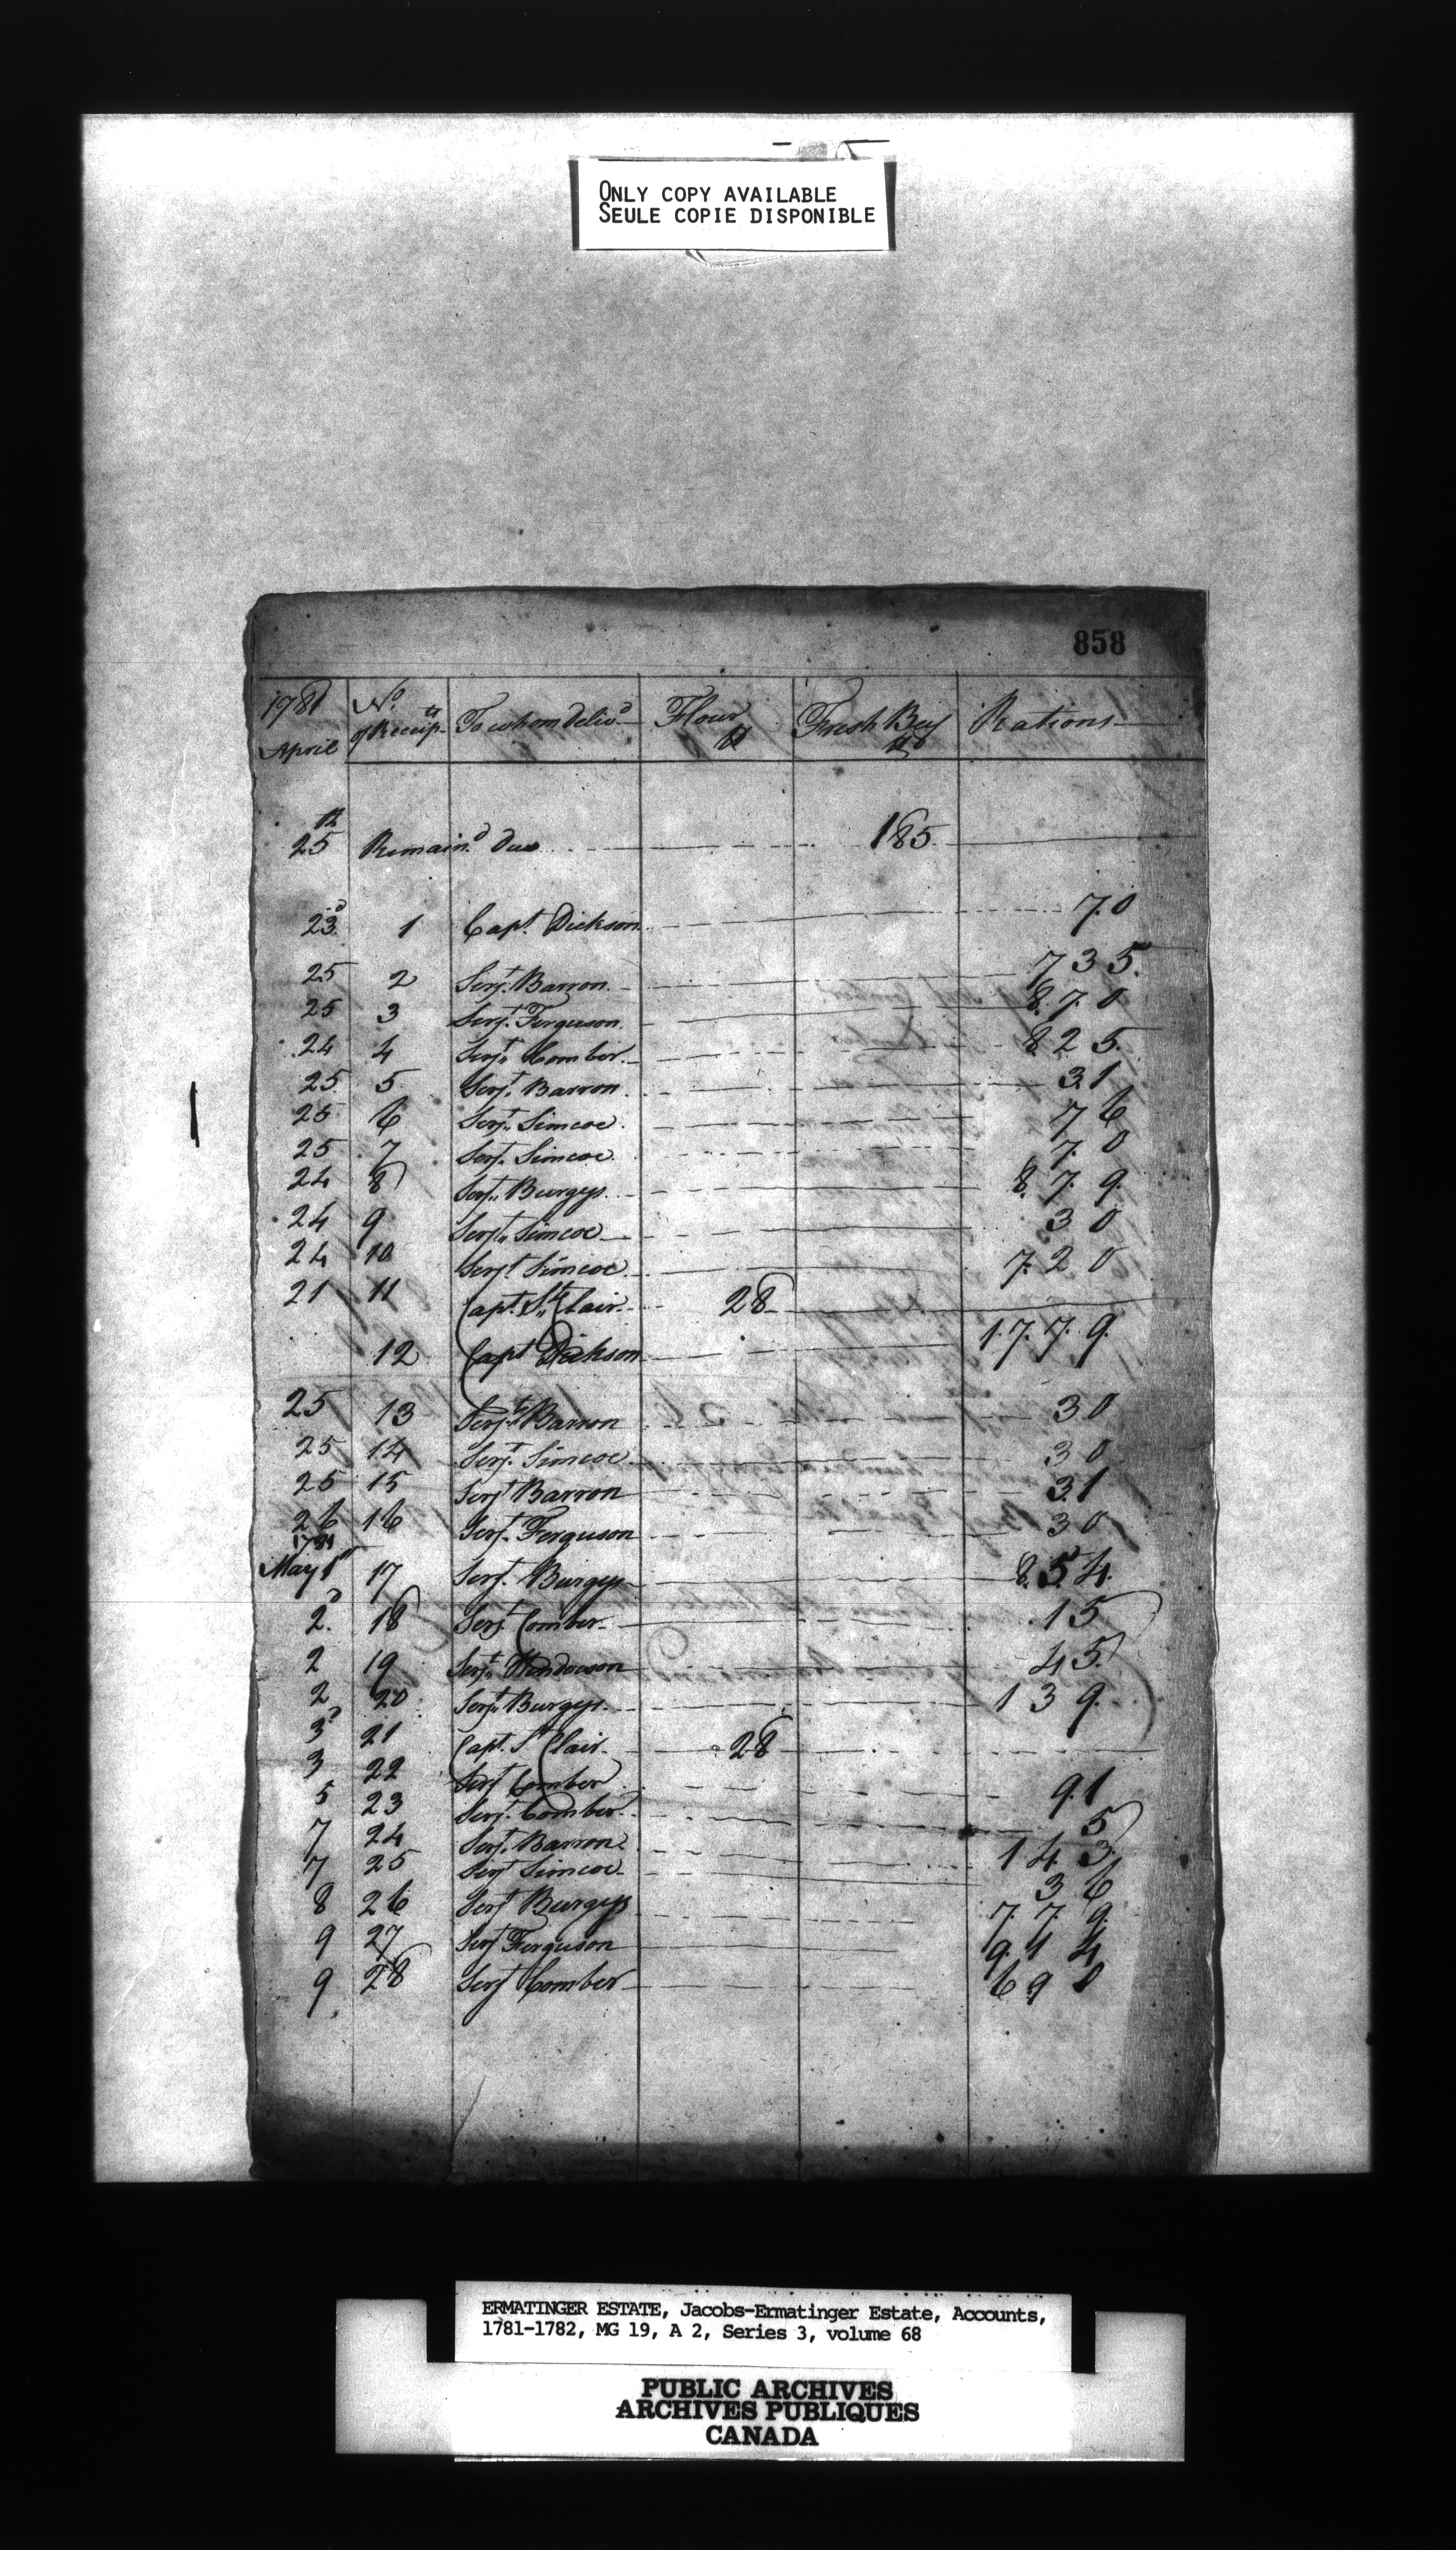 ONLY COPY AVAILABLE
SEULE COPIE DISPONIBLE
858
1781 April No. of Receipts To whom Deliv.d Flour lb Fresh Beef lb Rations
25th Remain.d due 185
23d 1 Capt. Dickson 70
25 2 Serjt. Barron 735
25 3 Serjt. Ferguson 870
24 4 Serjt. Comber 825
25 5 Serjt. Barron 31
25 6 Serjt. Simcoe 76
25 7 Serjt. Simcoe 70
24 8 Serjt. Burgys 879
24 9 Serjt. Simcoe 30
24 10 Serjt. Simcoe 720
21 11 Capt. St. Clair 28
12 Capt Dickson 1779
25 13 Serjt. Barron 30
25 14 Serjt. Simcoe 30
25 15 Serjt Barron 31
26 16 Serjt. Ferguson 30
1781
May 1st 17 Serjt. Burgys 854
2d 18 Serjt. Comber 15
2 19 Serjt. 45
2 20 Serjt. Burgys 139
3d 21 Capt. St Clair 28
3 22 Serjt Comber 91
5 23 Serjt. Comber 5
7 24 Serjt. Barron 143
7 25 Serjt Simcoe 36
8 26 Serjt Burgys 779
9 27 Serjt Ferguson 914
9 28 Serjt Comber 690
ERMATINGER ESTATE, Jacobs-Ermatinger Estate, Accounts,
1781-1782, MG 19, A 2, Series 3, volume 68
PUBLIC ARCHIVES
ARCHIVES PUBLIQUES
CANADA